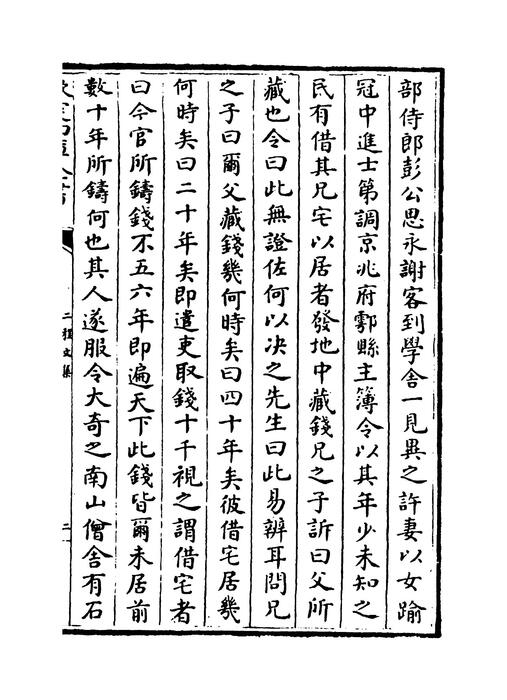 部侍郎彭公思永謝客到學舎一見異之許妻以女踰
冠中進士第調京兆府鄠縣主簿令以其年少未知之
民有借其兄宅以居者發地中藏錢兄之子訴曰父所
藏也令曰此無證佐何以决之先生曰此易辨耳問兄
之子曰爾父藏錢幾何時矣曰四十年矣彼借宅居幾
何時矣曰二十年矣即遣吏取錢十千視之謂借宅者
曰今官所鑄錢不五六年即遍天下此錢皆爾未居前
數十年所鑄何也其人遂服令大奇之南山僧舎有石
二程文集